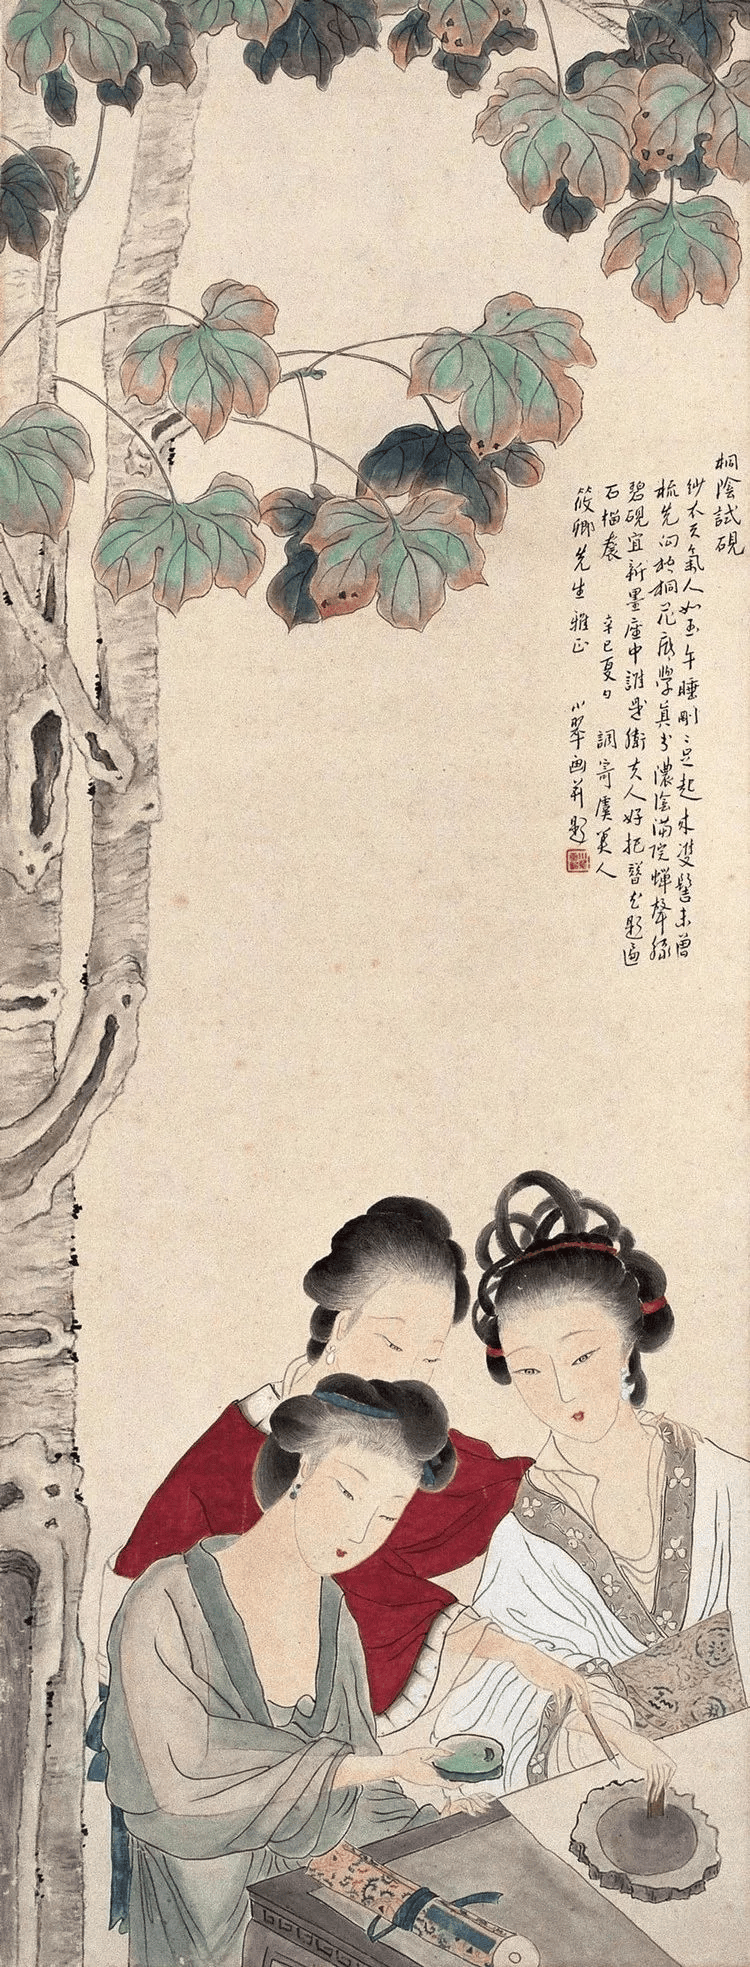 桐陰試硯
紗衣天氣人如玉午睡剛〻足起來雙髻未曾
梳先向桐花底學真書濃陰滿院蟬聲綠
碧硯宜新墨座中誰是衛夫人好把簪花題遍
石榴裙 辛巳夏日 調寄虞美人
筱卿先生雅正 小翠画并題